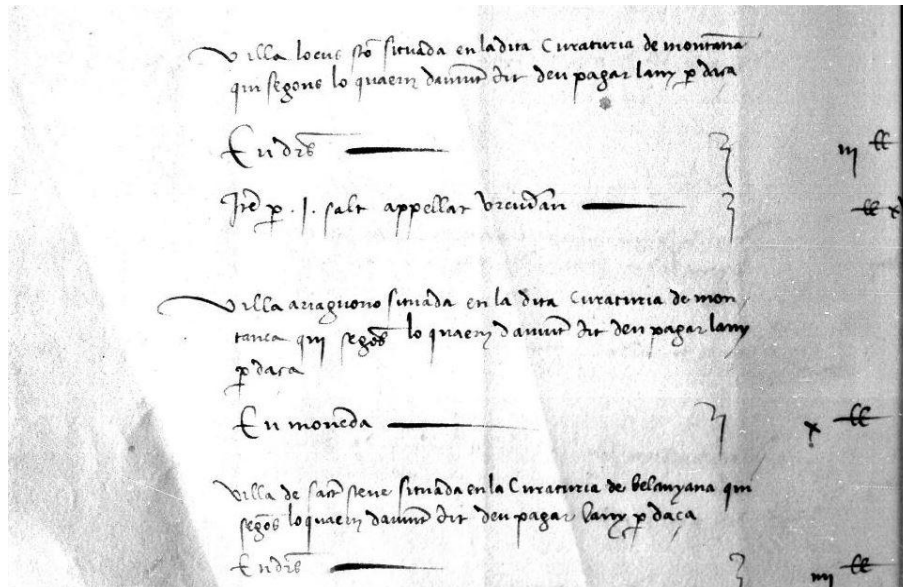 Villa locus sto situada en la dita Curaturia de montana
qui segons lo quaern damunt dit deu pagar lany p daça
En drs iij ll
Ite p .j. salt appellat ll x
Villa ariaguono situada en la dita Curaturia de mon
tanea qui segons lo quaern damunt dit deu pagar lany
p daça
En moneda x ll
Villa de sact steve situada en la Curaturia de belanyana qui
segons lo quaern damunt dit deu pagar lany p daça
En drs iiij ll